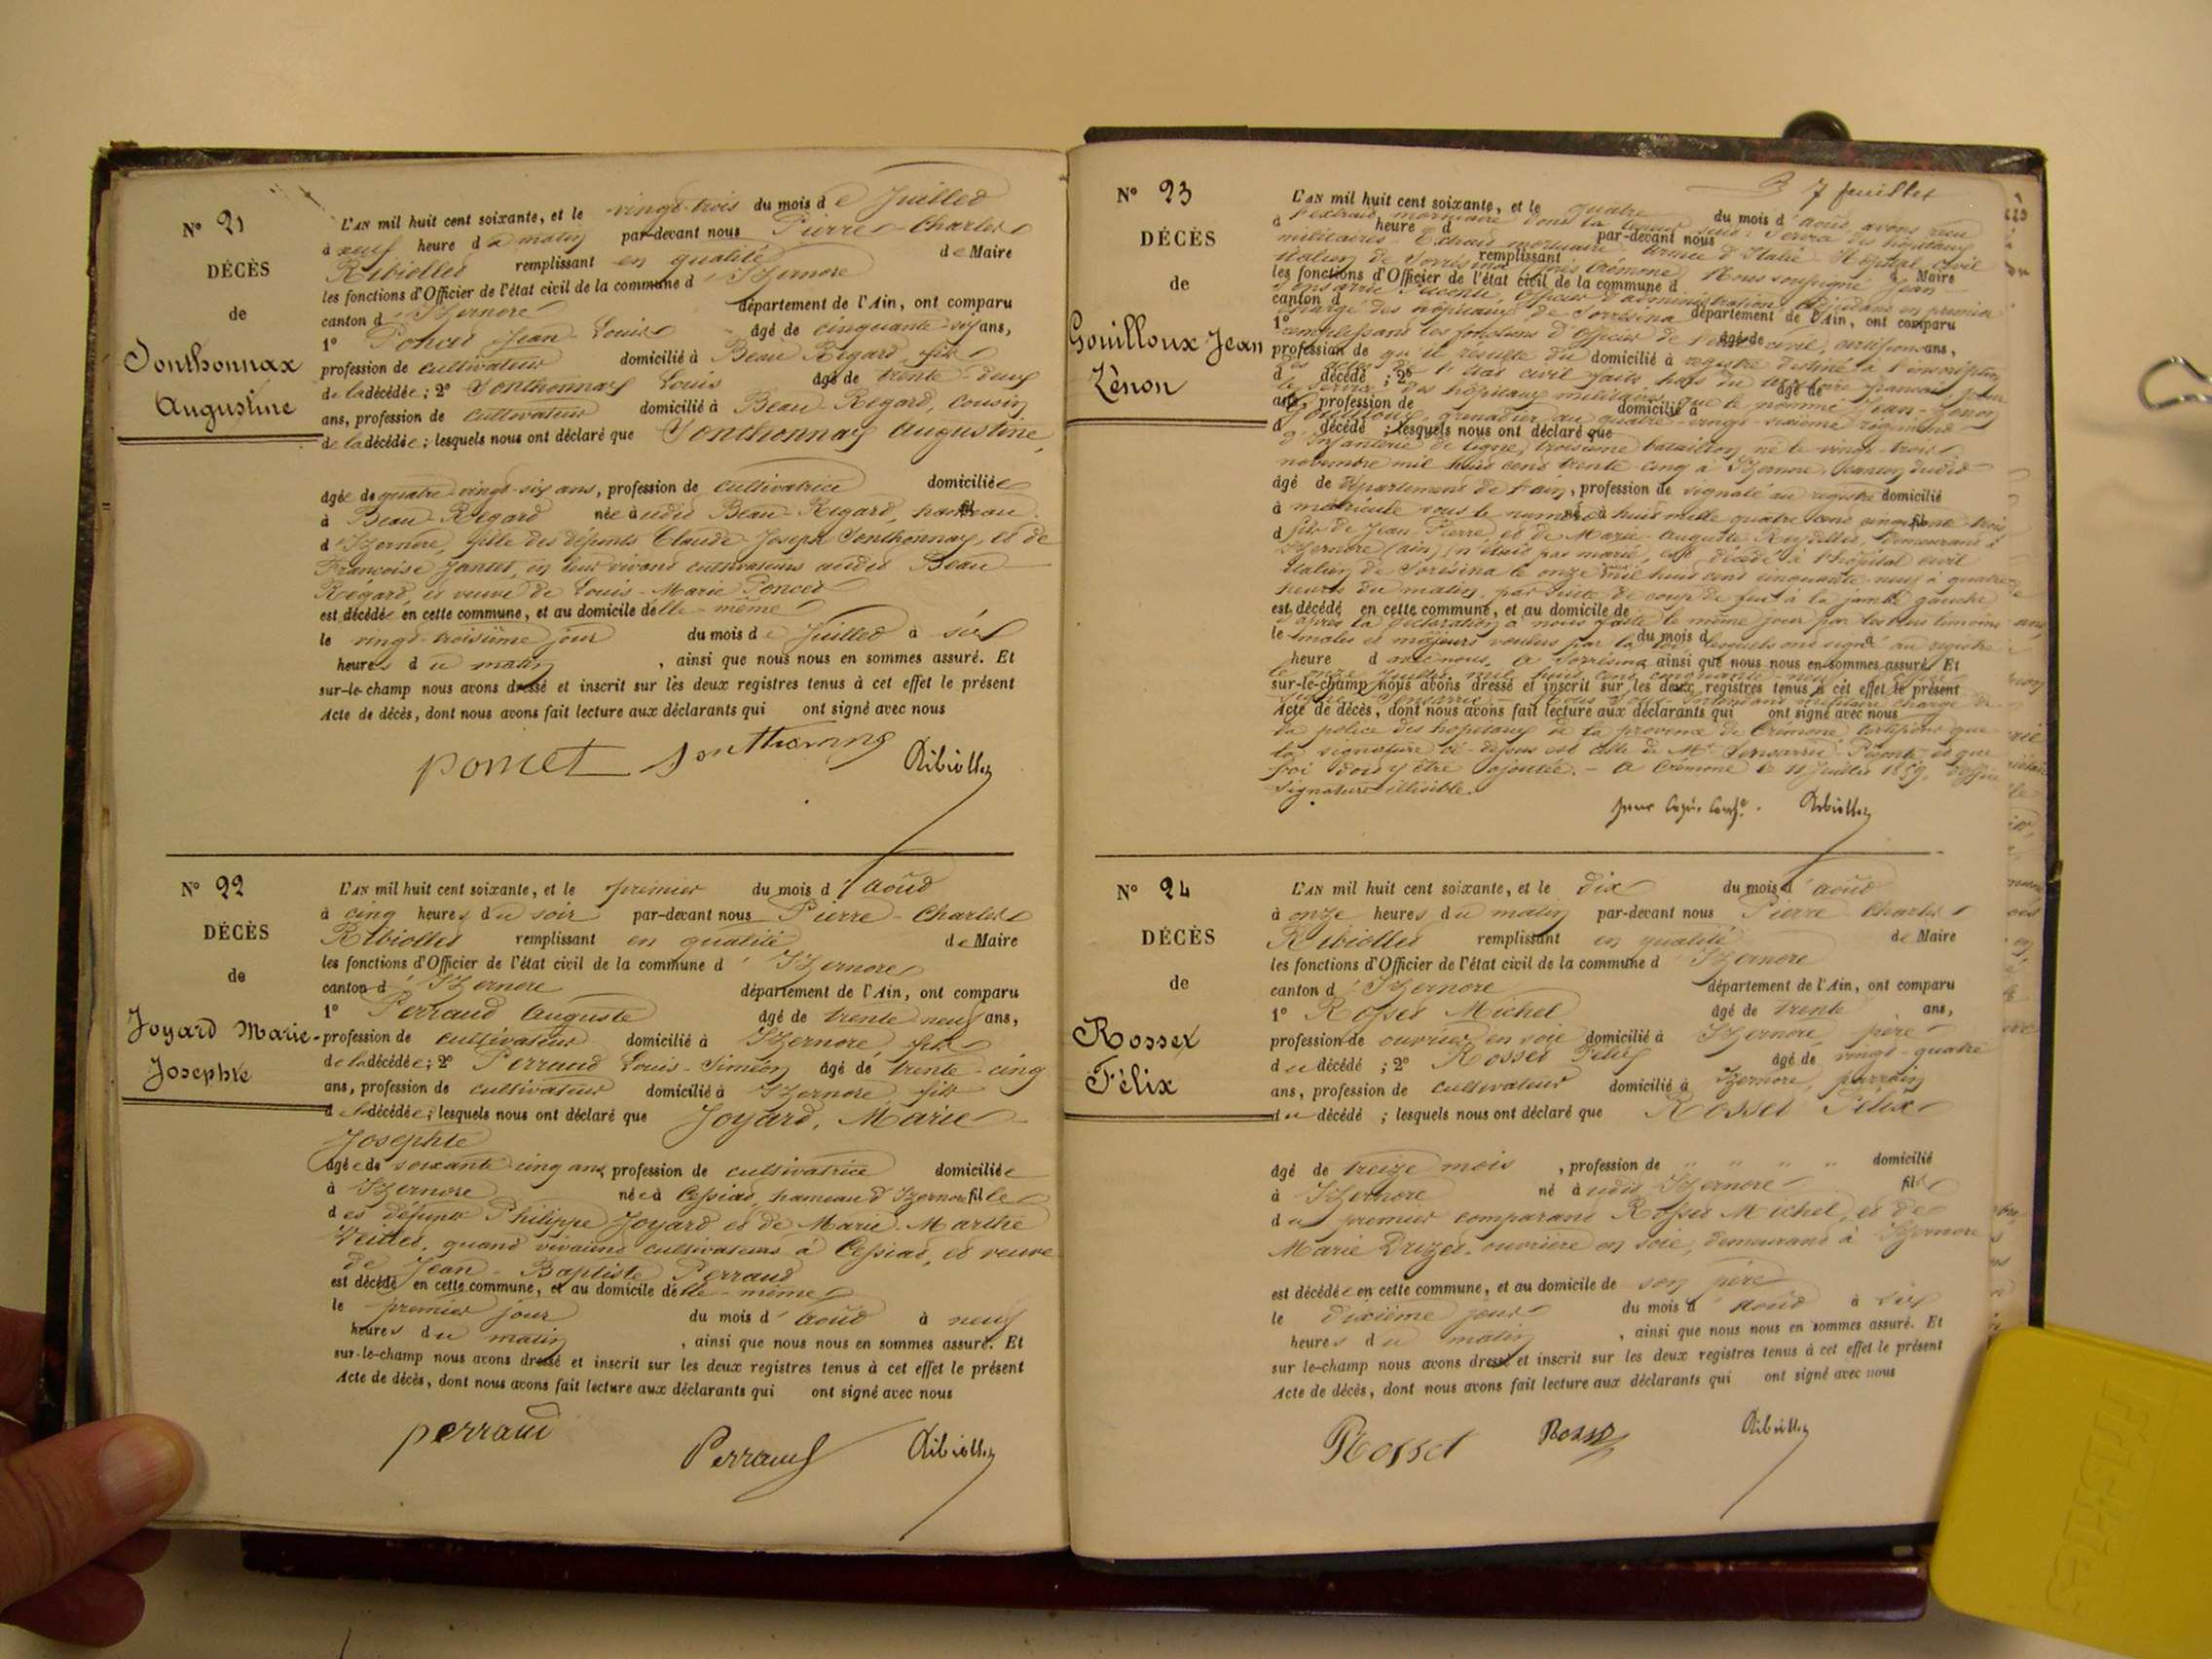 N° 21
DÉCÈS
de
Jonthonnax
Augustine
L'AN mil huit cent soixante, et le vingt-trois du mois de Juillet
à neuf heure du matin par-devant nous Pierre-Charles
Ribiollet remplissant en qualité de Maire
les fonctions d'Officier de l'état civil de la commune d'Izernore
canton d'Izernore département de l'Ain, ont comparu
1° Poncet Jean-Louis âgé de cinquante-six ans,
profession de cultivateur domicilié à Beau-Regard, fils
de la décédée; 2° Jonthonnax Louis âgé de trente-deux
ans, profession de cultivateur domicilié à Beau-Regard, cousin
de la décédée; lesquels nous ont déclaré que Jonthonnax Augustine,
âgée de quatre-vingt-six ans, profession de cultivatrice domiciliée
à Beau-Regard née audit Beau-Regard, hameau
d'Izernore, fille des défunts Claude-Joseph Jonthonnax, et de
Françoise Jantet, en leur vivant cultivateurs audit Beau-
Régard, et veuve de Louis-Marie Poncet
est décédée en cette commune, et au domicile d'elle-même
le vingt-troisième jour du mois de Juillet à six
heures du matin, ainsi que nous nous en sommes assuré. Et
sur-le-champ nous avons dressé et inscrit sur les deux registres tenus à cet effet le présent
Acte de décès, dont nous avons fait lecture aux déclarants qui ont signé avec nous
poncet Ribiollet
N° 22
DÉCÈS
de
Joyard Marie-
Josephte
L'AN mil huit cent soixante, et le premier du mois d'août
à cinq heures du soir par-devant nous Pierre-Charles
Ribiollet remplissant en qualité de Maire
les fonctions d'Officier de l'état civil de la commune d'Izernore
canton d'Izernore département de l'Ain, ont comparu
1° Perraud Auguste âgé de trente neuf ans,
profession de cultivateur domicilié à Izernore, fils
de la décédée; 2° Perraud Louis-Siméon âgé de trente-cinq
ans, profession de cultivateur domicilié à Izernore, fils
de la décédée; lesquels nous ont déclaré que Joyard, Marie
Josephte
âgée de soixante cinq ans, profession de cultivatrice domiciliée
à Izernore née à Cessiat, hameau d'Izernore fille
des défunts Philippe Joyard et de Marie-Marthe
quand vivaient cultivateurs à Cessiat, et veuve
de Jean-Baptiste Perraud
est décédé en cette commune, et au domicile d'elle-même
le premier jour du mois d'août à neuf
heures du matin, ainsi que nous nous en sommes assuré. Et
sur-le-champ nous avons dressé et inscrit sur les deux registres tenus à cet effet le présent
Acte de décès, dont nous avons fait lecture aux déclarants qui ont signé avec nous
perraud Perraud Ribiollet
7 feuillet
N° 23
DÉCÈS
de
Gouilloux Jean
Zénon
L'AN mil huit cent soixante, et le quatre du mois d'août avons reçu
à heure d par-devant nous
l'extrait mortuaire dont la teneur suit: Service des hôpitaux
militaires. Extrait mortuaire Armée d'Italie Hôpital civil
remplissant Maire
italien de Crémone) Nous soussigné Jean
les fonctions d'Officier de l'état civil de la commune d
officier d'administration
canton d département de l'Ain, ont comparu
chargé des hôpitaux de
1° remplissant les fonctions d'Officier de l'état civil, certifions
âgé de ans,
profession de qu'il résulte du domicilié à registre destiné à l'inscription
d décédé; 2° âgé de
des actes de l'état civil faits hors du territoire français pour
le service des hôpitaux militaires, que le nommé Jean-Zénon
ans, profession de domicilié à
Gouilloux, grenadier au quatre-vingt-sixième régiment
d décédé; lesquels nous ont déclaré que
d'Infanterie de ligne, troisième bataillon, né le vingt-trois
novembre mil huit cent trente-cinq à Izernore, canton dudit
âgé de département de l'Ain, profession de signalé au registre domicilié
à matricule sous le numéro né à huit mille quatre cent cinquante trois
d fils de Jean-Pierre et de Marie-Auguste demeurant à
Izernore (ain) n'étant pas marié, est décédé à l'hôpital civil
italien de le onze mil huit cent cinquante-neuf à quatre
heures du matin, par suite de coup de feu à la jambe gauche
est décédé en cette commune, et au domicile de
d'après la déclaration à nous faite le même jour par les deux témoins
le mâles et majeurs voulus par la loi lesquels ont signé au registre
du mois d à
heure d avec nous. ainsi que nous nous en sommes assuré. Et
sur-le-champ nous avons dressé et inscrit sur les deux registres tenus à cet effet le présent
Acte de décès, dont nous avons fait lecture aux déclarants qui ont signé avec nous
la police des hôpitaux de la province de Crémone certifions que
la signature ci-dessus est celle de Mr et que
foi doit y être ajoutée. - à Crémone le 11 Juillet 1859.
Signature illisible.
Ribiollet
N° 24
DÉCÈS
de
Rosset
Félix
L'AN mil huit cent soixante, et le dix du mois d'août
à onze heures du matin par-devant nous Pierre Charles
Ribiollet remplissant en qualité de Maire
les fonctions d'Officier de l'état civil de la commune d'Izernore
canton d'Izernore département de l'Ain, ont comparu
1° Rosset Michel âgé de trente ans,
profession de ouvrier en soie domicilié à Izernore, père
du décédé; 2° Rosset Félix âgé de vingt-quatre
ans, profession de cultivateur domicilié à Izernore, parrain
du décédé; lesquels nous ont déclaré que Rosset Félix
âgé de treize mois, profession de " " " " domicilié
à Izernore né audit Izernore fils
du premier comparant Rosset Michel, et de
Marie Drizet, ouvrière en soie, demeurant à Izernore
est décédée en cette commune, et au domicile de son père
le dixième jour du mois d'août à six
heures du matin, ainsi que nous nous en sommes assuré. Et
sur le-champ nous avons dressé et inscrit sur les deux registres tenus à cet effet le présent
Acte de décès, dont nous avons fait lecture aux déclarants qui ont signé avec nous
Rosset Rosset Ribiollet